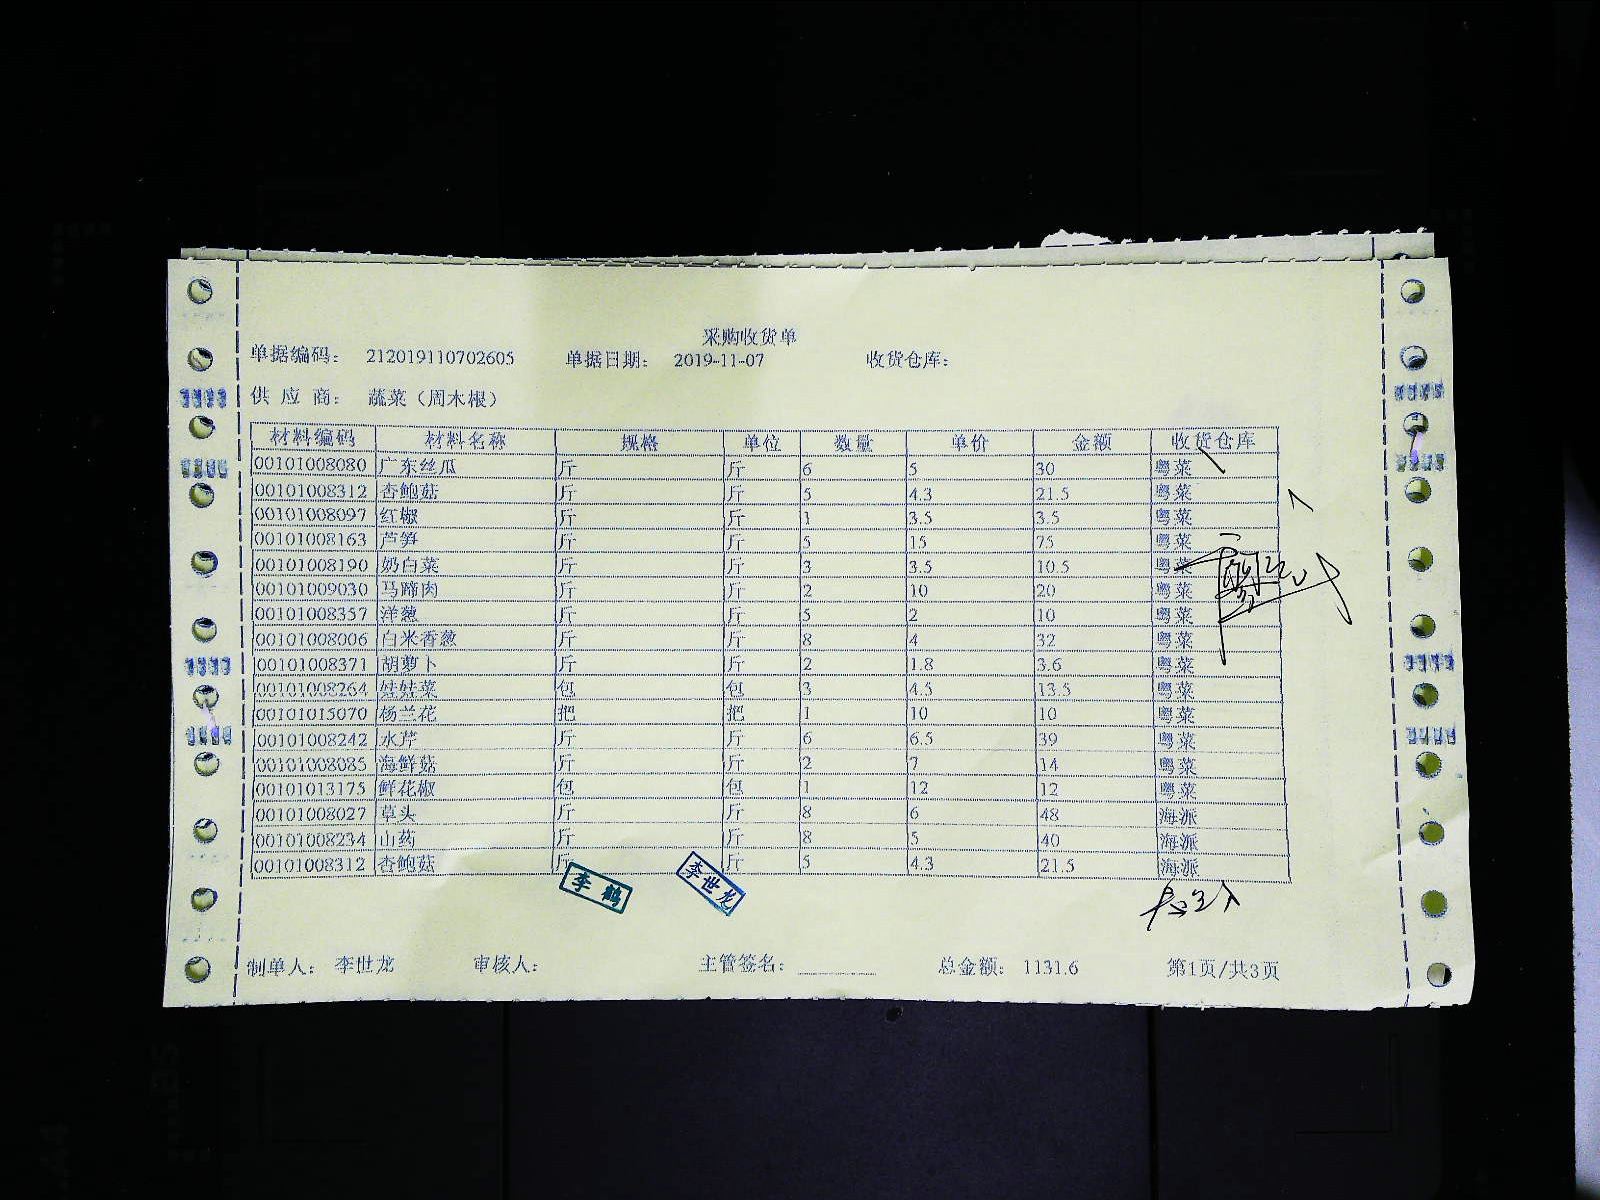 采购收货单
单据编码: 212019110702605 单据日期: 2019-11-07 收货仓库:
供 应 商: 蔬菜（周木根）
材料编码 材料名称 规格 单位 数量 单价 金额 收货仓库
00101008080 广东丝瓜 斤 斤 6 5 30 粤菜
00101008312 杏鲍菇 斤 斤 5 4.3 21.5 粤菜
00101008097 红椒 斤 斤 1 3.5 3.5 粤菜
00101008163 芦笋 斤 斤 5 15 75 粤菜
00101008190 奶白菜 斤 斤 3 3.5 10.5 粤菜
00101009030 马蹄肉 斤 斤 2 10 20 粤菜
00101008357 洋葱 斤 斤 5 2 10 粤菜
00101008006 白米香葱 斤 斤 8 4 32 粤菜
00101008371 胡萝卜 斤 斤 2 1.8 3.6 粤菜
00101008264 娃娃菜 包 包 3 4.5 13.5 粤菜
00101015070 杨兰花 把 把 1 10 10 粤菜
00101008242 水芹 斤 斤 6 6.5 39 粤菜
00101008085 海鲜菇 斤 斤 2 7 14 粤菜
00101013175 鲜花椒 包 包 1 12 12 粤菜
00101008027 草头 斤 斤 8 6 48 海派
00101008234 山药 斤 斤 8 5 40 海派
00101008312 杏鲍菇 斤 斤 5 4.3 21.5 海派
李鹤 李世龙
制单人: 李世龙 审核人: 主管签名: 总金额: 1131.6 第1页/共3页